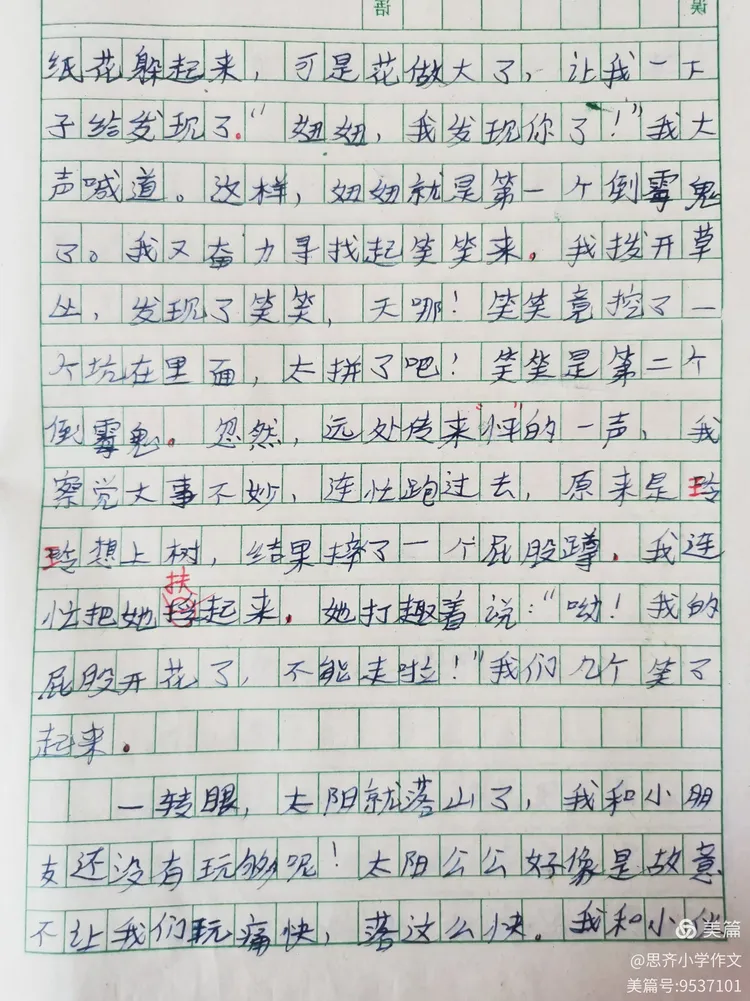 纸花躲起来，可是花做大了，让我一下
子给发现了。“妞妞，我发现你了！”我大
声喊道。这样，妞妞就是第一个倒霉鬼
了。我又奋力寻找起笑笑来。我拨开草
丛，发现了笑笑，天哪！笑笑竟挖了一
个坑在里面，太拼了吧！笑笑是第二个
倒霉鬼。忽然，远处传来“怦”的一声，我
察觉大事不妙，连忙跑过去，原来是玲
玲想上树，结果摔了一个屁股蹲。我连
扶
忙把她起来。她打趣着说：“呦！我的
屁股开花了，不能走啦！”我们几个笑了
起来。
一转眼，太阳就落山了，我和小朋
友还没有玩够呢！太阳公公好像是故意
不让我们玩痛快，落这么快。我和小
美篇
@思齐小学作文
美篇号:9537101